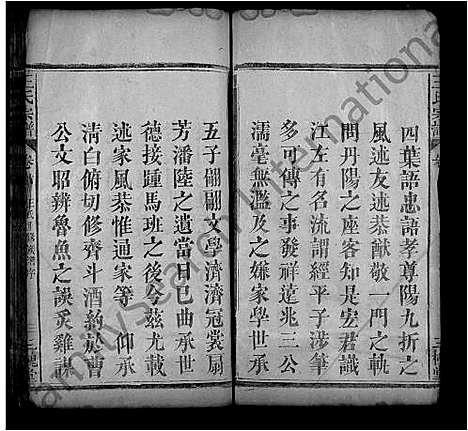 四葉語忠語孝尊陽九折之
風述友述恭猷敬一門之軌
問丹陽之座客知是宏君議
江左有名流謂經平子涉筆
多可傳之事發祥遠兆三公
濡毫無濫及之嫌家學世承
五子翩翩文學濟濟冠裳扇
芳潘陸之遺當日已曲承世
德接踵馬班之後今玆尤載
述家風恭惟通家等 仰承
清白俯切修齊斗酒約放曹
公文昭辨魯魚之誤炙雞
王氏宗譜
FamilySearch International